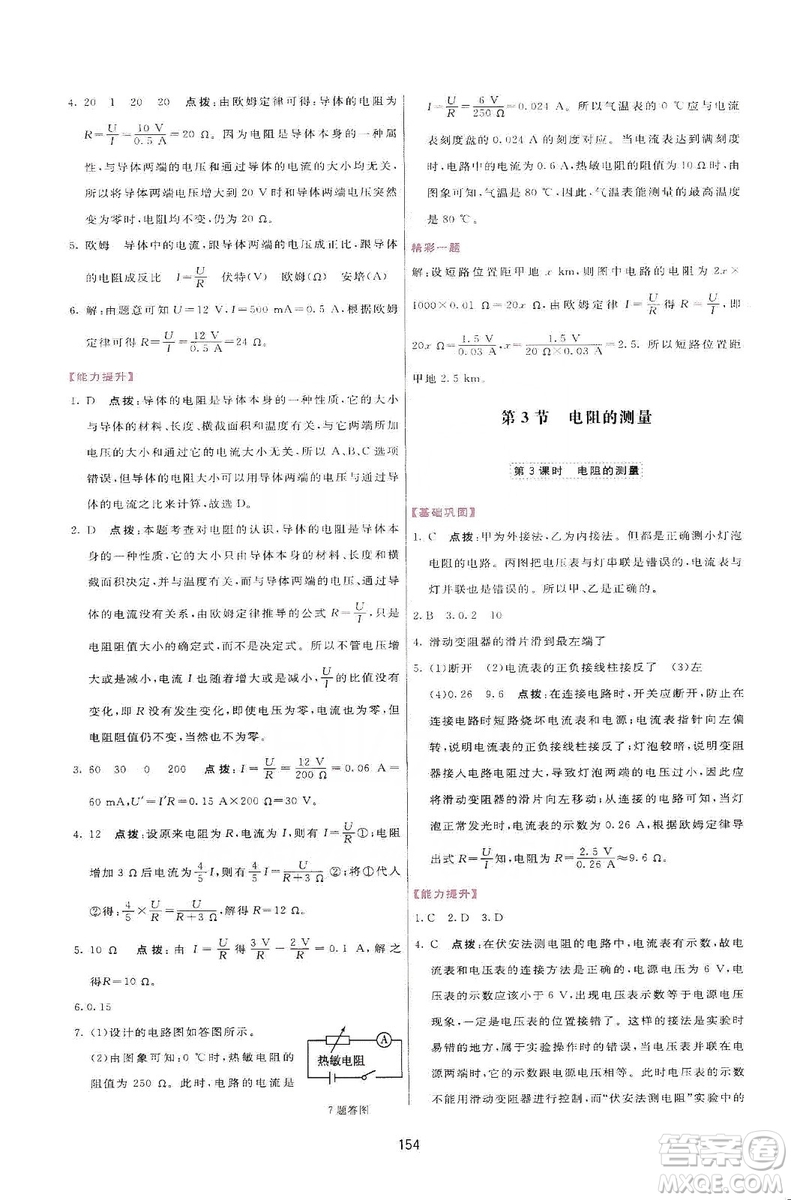 4. 20 1 20 20 点拨:由欧姆定律可得:导体的电阻为
R=U/I=10 V/0.5 A=20 Ω。因为电阻是导体本身的一种属
性,与导体两端的电压和通过导体的电流的大小均无关,
所以将导体两端电压增大到 20 V时和导体两端电压突然
变为零时,电阻均不变,仍为 20 Ω。
5. 欧姆 导体中的电流,跟导体两端的电压成正比,跟导体
的电阻成反比 I=U/R 伏特(V) 欧姆(Ω) 安培(A)
6. 解:由题意可知U=12 V,I=500 mA=0.5 A,根据欧姆
定律可得R=U/I=12 V/0.5 A=24 Ω。
【能力提升】
1. D 点拨:导体的电阻是导体本身的一种性质,它的大小
与导体的材料、长度、横截面积和温度有关,与导体两端的
电压的大小和通过它的电流的大小无关,所以A、B、C选项
错误,但导体的电阻大小可以用导体两端的电压与通过导
体的电流之比来计算,故选D。
2. D 点拨:本题考查对电阻的认识,导体的电阻是导体本身
的一种性质,它的大小只由导体本身的材料、长度和横
截面积决定,并与温度有关,与导体两端的电压、电流
没有关系,由欧姆定律推导的公式 R=U/I,只是
电阻阻值大小的确定式,而不是决定式。不管电压增大
或是减小,电流 I 也跟着增大或是减小,而 U/I 比值没有
变化,即 R 没有发生变化,即使电压为零,电流为零,
电阻阻值仍不变,故选D。
3. 60 30 0 200 点拨:I=U/R=12 V/200 Ω=0.06 A=
60 mA,U'=I'R=0.15 A×200 Ω=30 V。
4. 12 点拨:设原来电阻为R,电流为I,则有I=U/R①;电阻
增加3 Ω后,电流为4/5 I,则有4/5 I=U/R+3②;将①代入
②得:4/5×U/R=U/R+3,解之得R=12 Ω。
5. 10 Ω 点拨:由 I=U/R 得 3 V/R-2 V/R=0.1 A,解之
得R=10 Ω。
6. 0.15
7. (1)设计的电路图如答图所示。
(2)由图象可知:0 ℃时,热敏电阻的
阻值为 250 Ω。此时,电路的电流是
A
热敏电阻
7题答图
I=U/R=6 V/250 Ω=0.024 A。所以气温表的0 ℃应与电流
表刻度盘的 0.024 A的刻度对应。当电流表达到最大刻度
时,电路中的电流为 0.6 A,热敏电阻的阻值为10 Ω,由
图象可知,气温是 80 ℃。所以,气温表能测量的最高温度
是80 ℃。
精彩一题
解:设短路位置距甲地 x km,则图中电路的电阻为 2x×
1000×0.01 Ω=20x Ω,由欧姆定律 I=U/R 得 R=U/I,即
20x=1.5 V/0.03 A,x=1.5 V/20 Ω×0.03 A=2.5. 所以短路位置距
甲地 2.5 km.
第3节 电阻的测量
第3课时 电阻的测量
【基础巩固】
1. C 点拨:甲为外接法,乙为内接法。但都是正确测小灯泡
电阻的电路。丙图把电压表与灯串联是错误的,电流表与
灯并联也是错误的。所以甲、乙是正确的。
2. B 3. 0.2 10
4. 滑动变阻器的滑片滑到最左端了
5. (1)断开 (2)电流表的正负接线柱接反了 (3)左
(4)0.26 9.6 点拨:在连接电路时,开关应断开,防止在连
接电路时短路烧坏电流表和电源;电流表指针向左偏
转,说明电流表的正负接线柱接反了;灯泡较暗,说明变阻
器接入电路电阻太大,导致灯泡两端的电压太小,所以应
将滑动变阻器的滑片向左移动;从连接的电路可知,当灯
泡正常发光时,电流表的示数为0.26 A,根据欧姆定律导
出式R=U/I知,R=2.5 V/0.26 A≈9.6 Ω。
【能力提升】
1. C 2. D 3. D
4. C 点拨:在伏安法测电阻的电路中,电流表有示数,电压
表的示数应小于6 V,出现电压表的示数等于电源电压
现象,一定是变阻器与电压表的位置接错了。这样的接法是
易错的地方,属于实验操作时的错误,当移动变阻器
时,它的示数不变,电压表的示数等于电源电压,电流表的示数
不能用滑动变阻器进行控制,而“伏安法测电阻”实验中,电压
154
答案圈
MXQE.COM